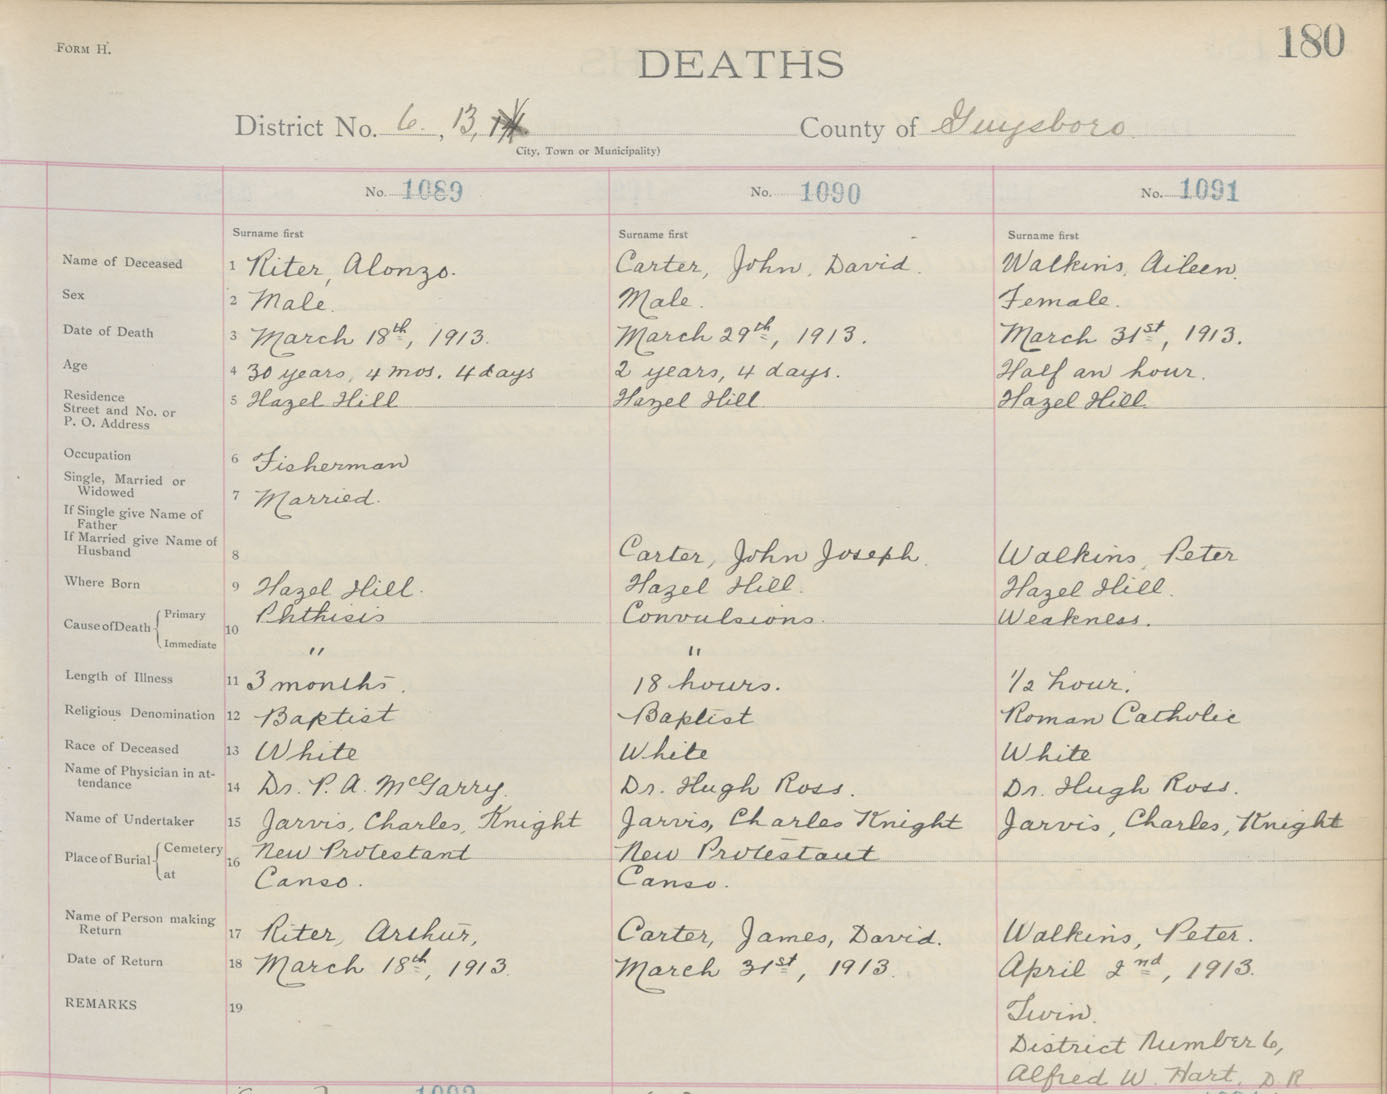 FORM H.
180
DEATHS
District No. 6, 13, County of Guysboro
City, Town or Municipality)
No. 1089 No. 1090 No. 1091
Surname first Surname first Surname first
Name of Deceased 1 Riter, Alonzo. Carter, John, David. Walkins, Aileen.
Sex 2 Male. Male. Female.
Date of Death 3 March 18th, 1913. March 29th, 1913. March 31st, 1913.
Age 4 30 years, 4 mos. 4 days 2 years, 4 days. Half an hour.
Residence
Street and No. or
P. O. Address
5 Hazel Hill Hazel Hill Hazel Hill
Occupation 6 Fisherman
Single, Married or
Widowed
7 Married.
If Single give Name of
Father
If Married give Name of
Husband
8 Carter, John Joseph Walkins, Peter
Where Born 9 Hazel Hill. Hazel Hill. Hazel Hill.
Cause of Death Primary 10 Phthisis Convulsions. Weakness.
Immediate " "
Length of Illness 11 3 months. 18 hours. 1/2 hour.
Religious Denomination 12 Baptist Baptist Roman Catholic
Race of Deceased 13 White White White
Name of Physician in at-
tendance
14 Dr. P. A. McGarry. Dr. Hugh Ross. Dr. Hugh Ross.
Name of Undertaker 15 Jarvis, Charles, Knight Jarvis, Charles Knight Jarvis, Charles, Knight
Place of Burial Cemetery 16 New Protestant New Protestant
at Canso. Canso.
Name of Person making
Return
17 Riter, Arthur, Carter, James, David. Walkins, Peter.
Date of Return 18 March 18th, 1913. March 31st, 1913. April 2nd, 1913.
REMARKS 19 Twin.
District Number 6,
Alfred W. Hart, D R